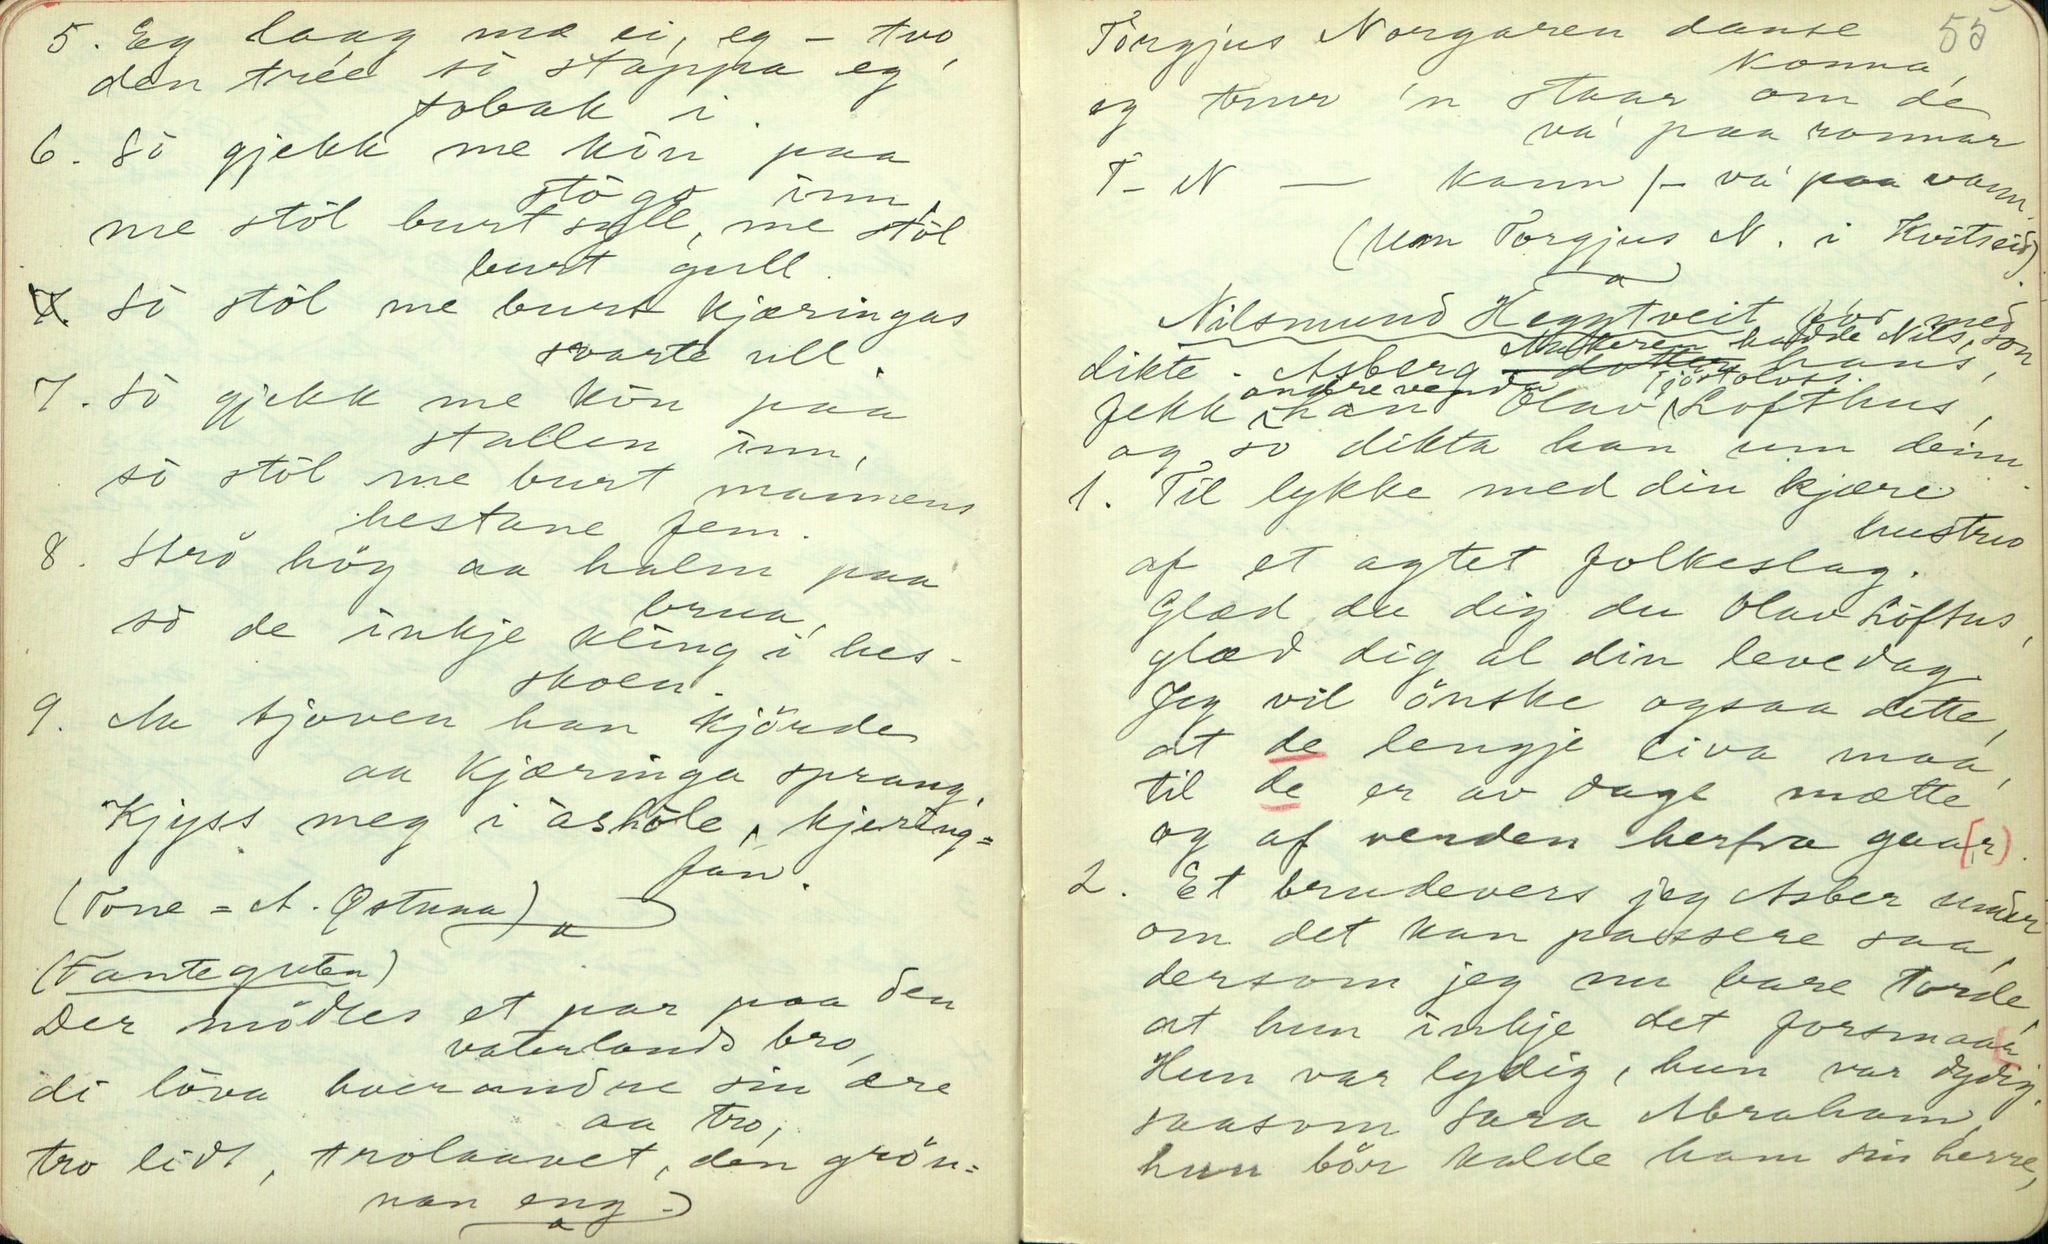 5. Eg laag me ei, eg – tvo,
den tree so stappa eg
tobak i.
6. So gjekk me kön paa
stogo inn,
me stöl burt syll, me stöl
burt gull.
So stöl me burt kjæringas
svarte ull.
7. So gjekk me kön paa
stallen inn,
so stöl me burt mannens
hestane fem.
8. Strö höy aa halm paa
brua,
so de inkje kling i hes-
skoen.
9. Aa tjoven han kjörde
aa kjæringa sprang,
Kjyss meg i åshole, kjering=
fan.
(Tone = A. Østnaa)
(Fanteguten)
Der mödtes et par paa den
vaterlands bro,
di löva hverandre sin ære
aa tro,
tro lidt, trolaavet, den grön=
nan eng.
55
Torgjus Norgaren danse
konna,
eg trur 'n staar om de
va' paa ronnar
T– N — kann /– va' paa vann.
(um Torgjus N. i Kvitseid).
Nilsmund Heggtveit for med
dikte. Asberg hadde Nils, son
hans,
fekk andre venda han Olav Lofthus,
og so dikta han um deim.
1. Til lykke med din kjære
hustru
af et agtet folkeslag.
Glæd du dig du Olav Löftus,
glæd dig al din levedag.
Jeg vil önske ogsaa dette,
at de lengje liva maa,
til de er av dage mætte
og af verden herfra gaa(r).
2. Et brudevers jeg Asber under
om det kan passere saa,
dersom jeg nu bare torde,
at hun inkje det forsmaar
Hun var lydig, hun var dydig.
saasom Sara Abraham,
hun bör kalde ham sin herre,